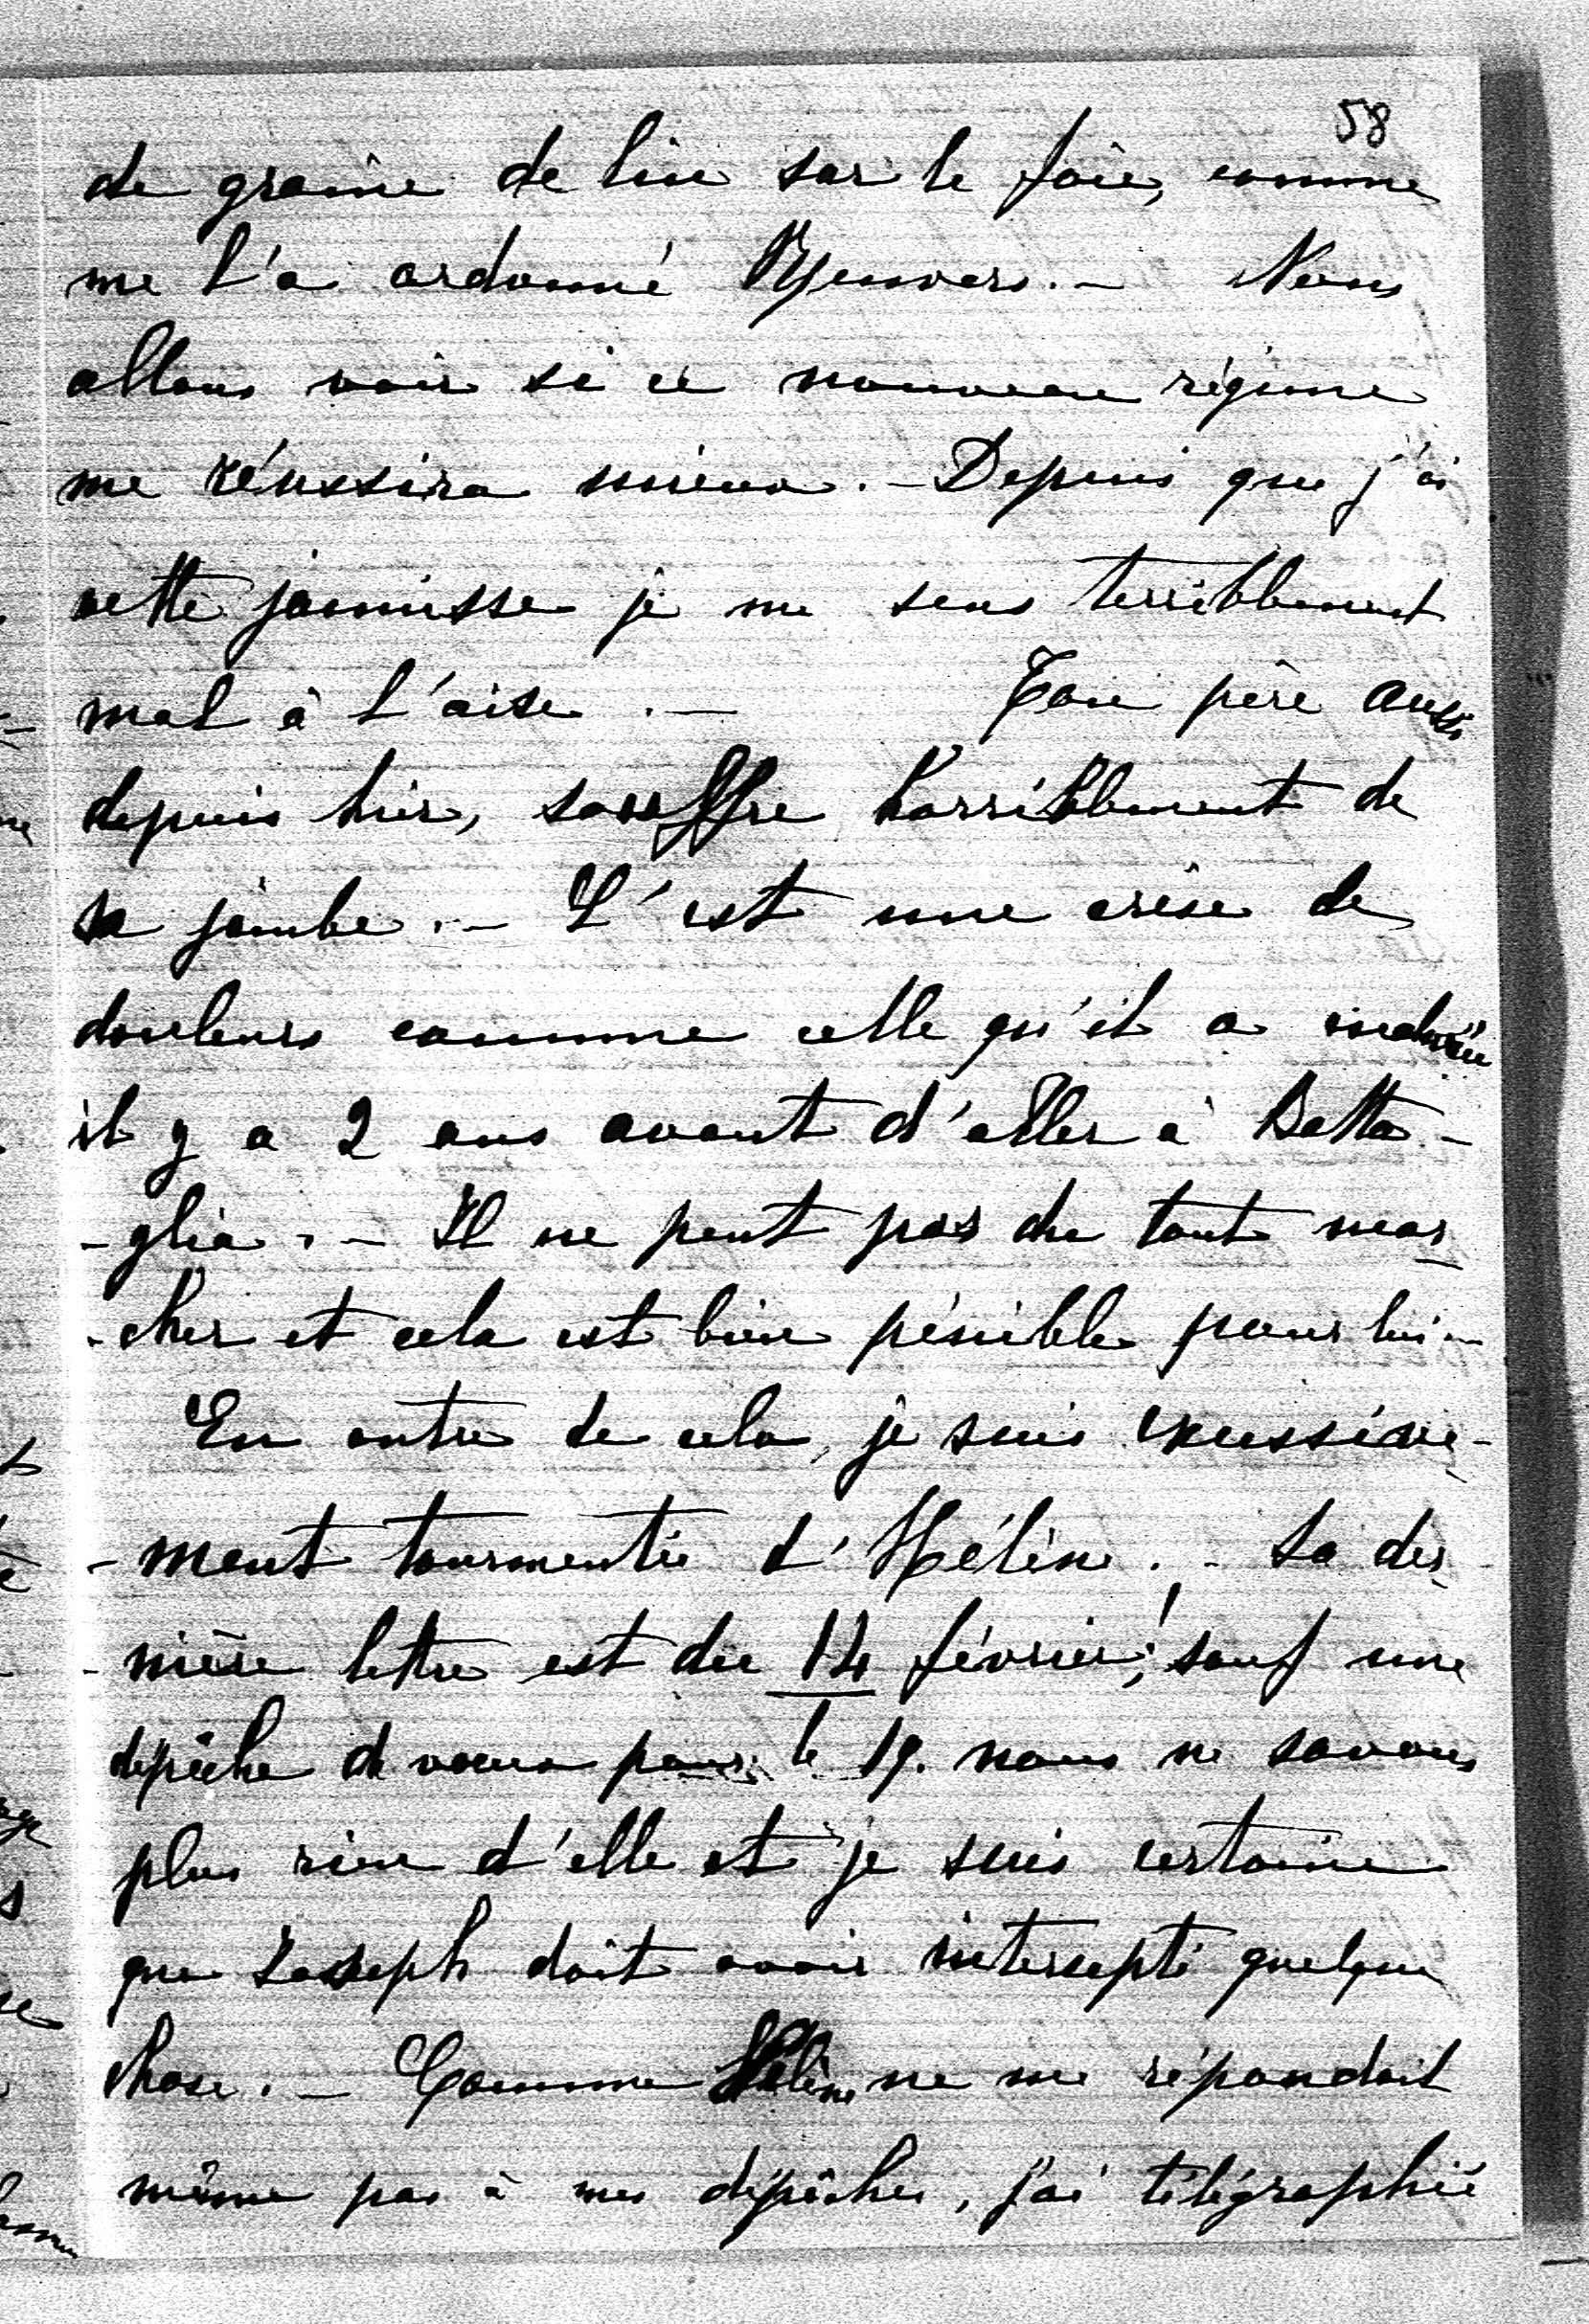 58
de graine de lin sur le foie, comme
me l'a ordonné Renvers. — Nous
allons voir si ce nouveau régime
me réussira mieux. — Depuis que j'ai
cette jaunisse je me sens terriblement
mal à l'aise. — Ton père aussi
depuis hier, souffre horriblement de
sa jambe. — C'est une crise de
douleurs comme celle qu'il a endurée
il y a 2 ans avant d'aller à Batta-
-glia. — Il ne peut pas du tout mar-
-cher et cela est bien pénible pour lui —
En outre de cela, je suis excessive-
-ment tourmentée d'Hélène. — Sa der-
-nière lettre est du 14 février! sauf une
dépêche de vœux pour le 19. nous ne savons
plus rien d'elle et je suis certaine
que Joseph doit avoir intercepté quelque
chose. — Comme Hélène ne me répondait
même pas à mes dépêches, j'ai télégraphié